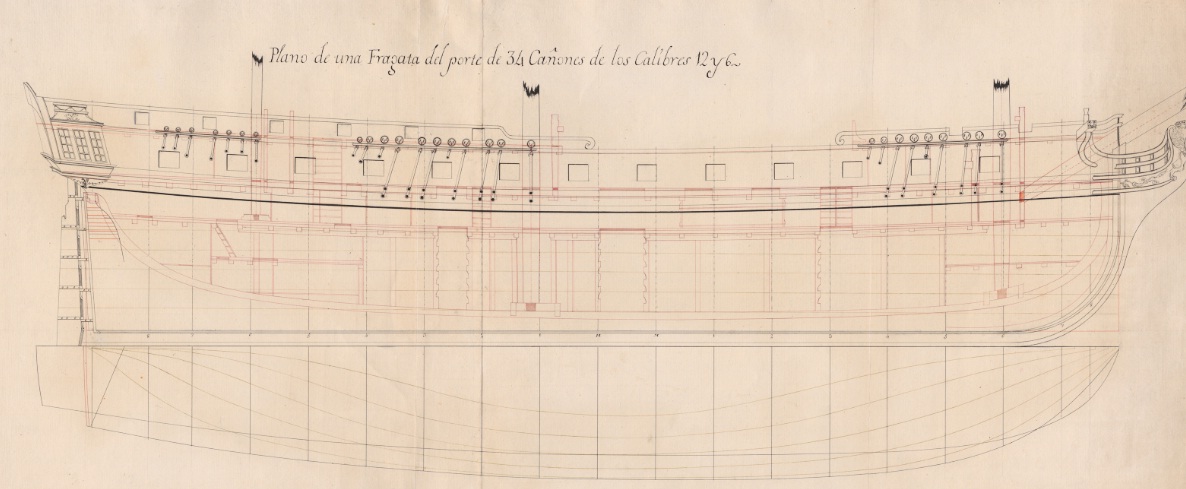 Plano de una Fragata del porte de 34 Cañones de los Calibres 12 y 6